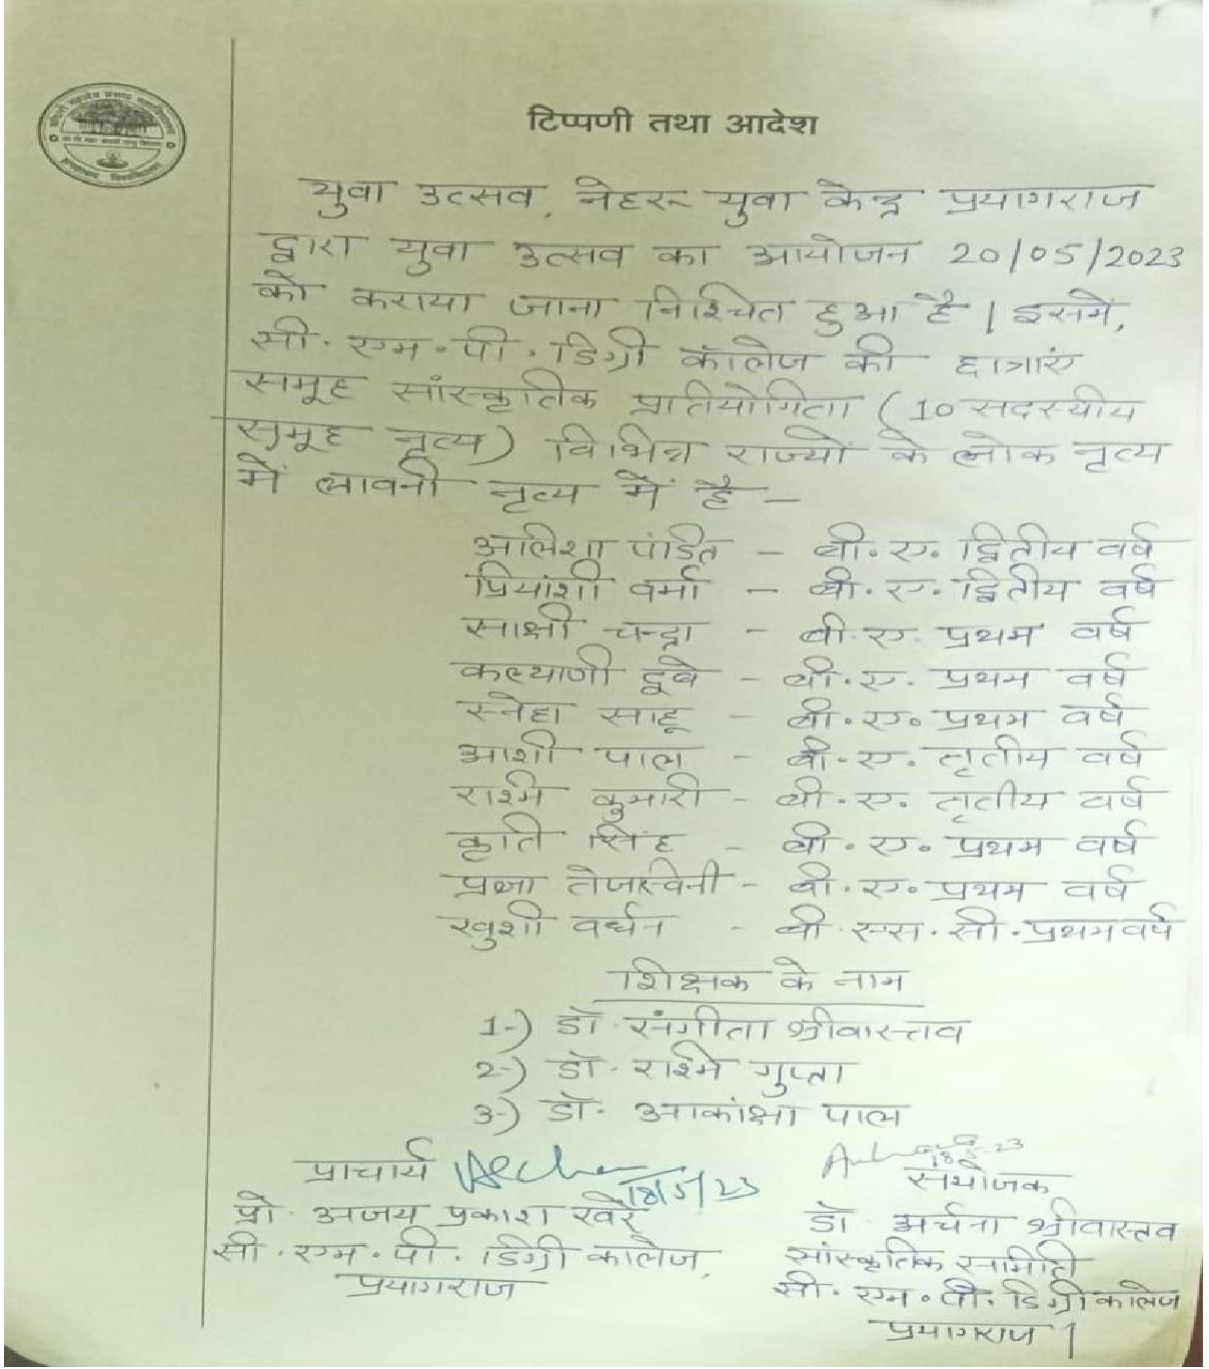 टिप्पणी तथा आदेश
युवा उत्सव, नेहरू युवा केन्द्र प्रयागराज
द्वारा युवा उत्सव का आयोजन 20/05/2023
को कराया जाना निश्चित हुआ है | इसमें,
सी. एम. पी. डिग्री कॉलेज की छात्राएं
समूह सांस्कृतिक प्रतियोगिता (10 सदस्यीय
समूह नृत्य) विभिन्न राज्यों के लोक नृत्य
में लावनी नृत्य में है –
अलिशा पंडित – बी. ए. द्वितीय वर्ष
प्रियांशी वर्मा – बी. ए. द्वितीय वर्ष
साक्षी चन्द्रा – बी. ए. प्रथम वर्ष
कल्याणी दूबे – बी. ए. प्रथम वर्ष
स्नेहा साहू – बी. ए. प्रथम वर्ष
आशी पाल – बी. ए. तृतीय वर्ष
राश्मि कुमारी – बी. ए. तृतीय वर्ष
कृति सिंह – बी. ए. प्रथम वर्ष
प्रज्ञा तेजस्विनी – बी. ए. प्रथम वर्ष
खुशी वर्धन – बी. एस. सी. प्रथम वर्ष
शिक्षक के नाम
1-) डॉ. संगीता श्रीवास्तव
2-) डॉ. राश्मि गुप्ता
3-) डॉ. आकांक्षा पाल
प्राचार्य 18/5/23
प्रो. अजय प्रकाश खरे
सी. एम. पी. डिग्री कालेज,
प्रयागराज
संयोजक
डॉ अर्चना श्रीवास्तव
सांस्कृतिक समिति
सी. एम. पी. डिग्री कालेज
प्रयागराज |